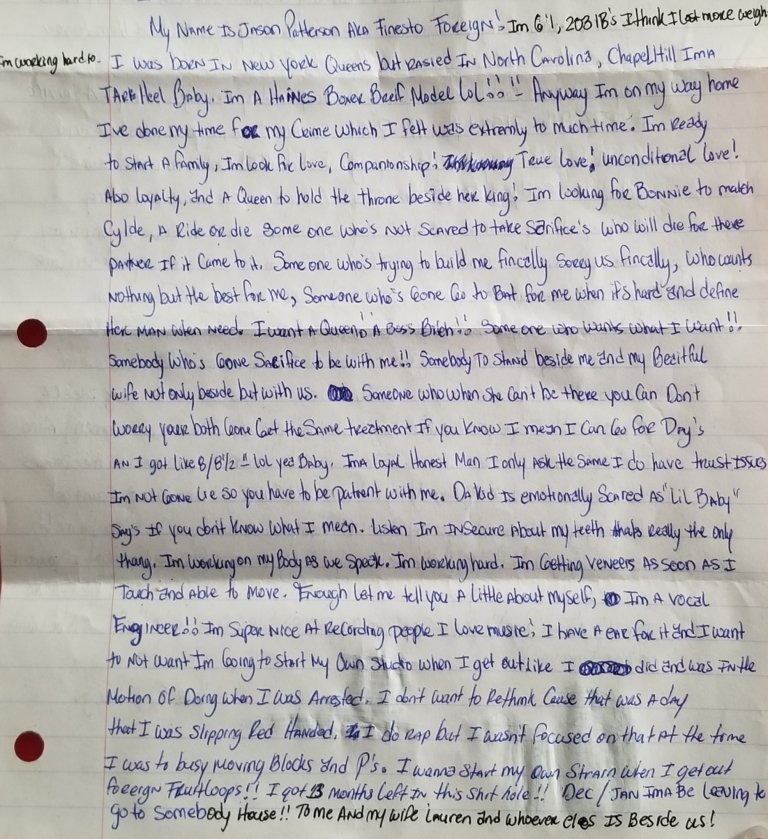 My Name Is Jason Patterson AKA Finesto Foreign! Im 6'1, 203 lB's I think I lost more weigh
I'm working hard to.
I was born IN New York Queens but Rasied IN North Carolina, Chapel Hill Im A
TARHeel Baby. Im A Haines Boxer Beeif Model Lol!!"- Anyway Im on my way home
I've done my time for my Crime which I felt was extremly to much time. Im Ready
to Start A family, Im look for love, Companionship! True Love! unconditional Love!
Also loyalty, and A Queen to hold the throne beside her king! Im looking for Bonnie to match
Cylde, A Ride or die Some one who's not Scared to take Sacrifice's who will die for there
partner If it Came to it. Some one who's trying to build me fincally Sorry us fincally, who wants
nothing but the best for me, Someone who's Gone Go to Bat for me when it's hard and define
Her MAN when Need. I want A Queen!! A Boss Bitch!! Some one who wants what I want!!
Somebody who's Gone Sacrifice to be with me!! Somebody To Stand beside me and my Beatiful
wife Not only beside but with us. Someone who when She Can't be there you Can Don't
worry your both Gone Get the Same treatment If you know I mean I Can Go for Day's
AN I got like 8/8½ " lol yea Baby. Im A loyal Honest Man I only Ask the Same I do have trust issues
Im Not Gone Lie so you have to be patient with me. Da kid Is emotionally Scared As "Lil Baby"
Say's If you don't know What I mean. Listen Im INSecure About my teeth thats Really the only
thang. Im working on my Body As we Speak. Im working hard. Im Getting Veneers As soon As I
Touch and Able to Move. Enough let me tell you A little About myself, Im A Vocal
Engineer!! Im Super Nice At Recording people I love music! I have A ear for it and I want
to Not want Im Going to Start My Own Studio when I get out like I did and was IN the
Motion of Doing when I was Arrested. I don't want to Rethink Cause that was A day
that I was Slipping Red Handed. I do Rap but I wasn't focused on that At the time
I was to busy Moving Blocks and P's. I wanna Start my own Strain when I get out
foreign Fruitloops!! I got 13 months left In this Shit hole!! Dec / JAN Ima Be leaving to
go to Somebody House!! To me And my wife Lauren and whoever eles Is Beside us!